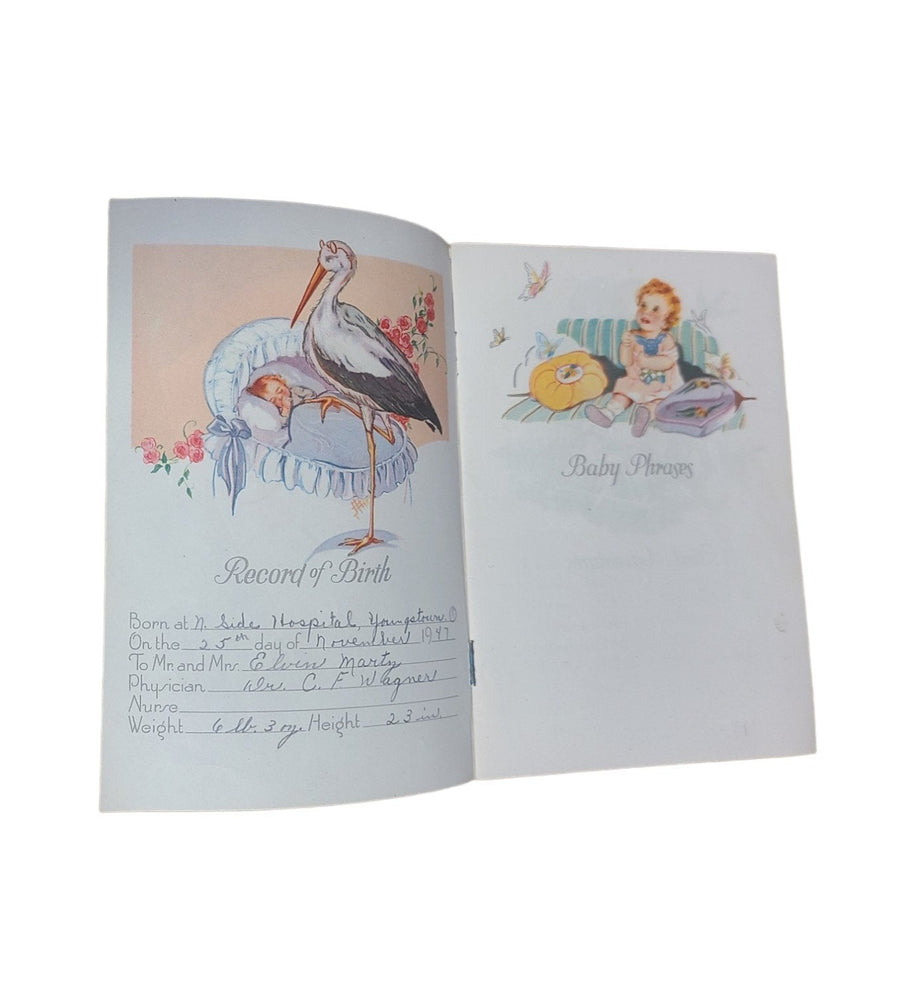 Record of Birth
Born at N. Side Hospital, Youngstown O
On the 25th day of November 1947
To Mr. and Mrs. Elvin Marty
Physician Dr. C. F. Wagner
Nurse
Weight 6 lb. 3 oz. Height 23 in.
Baby Phrases